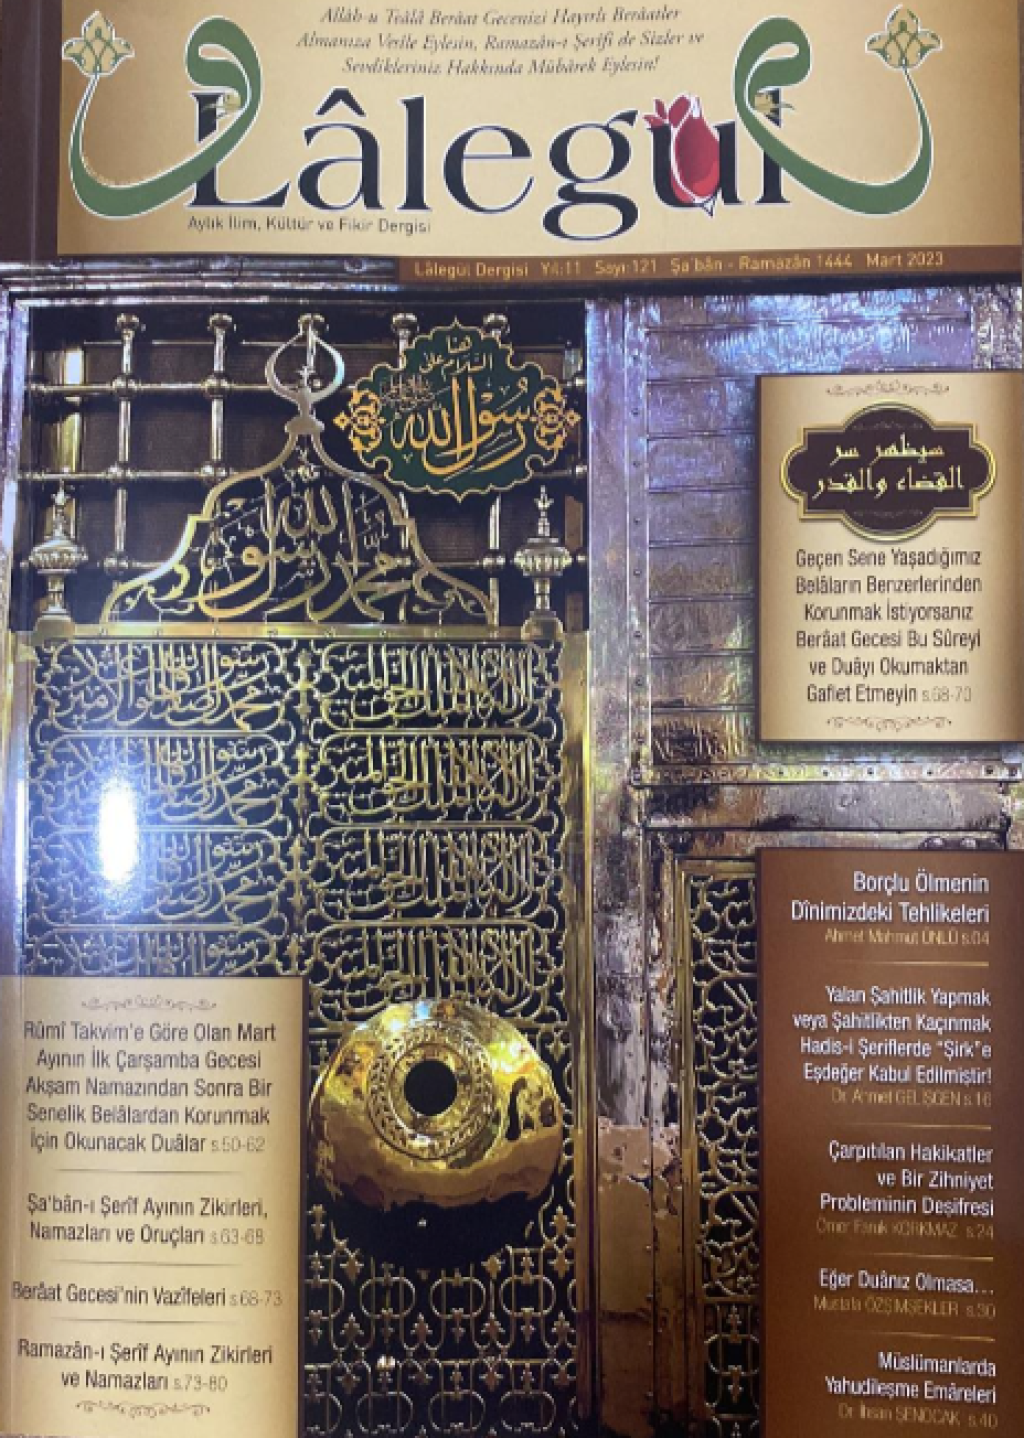 Allâh-u Teâlâ Berâat Gecenizi Hayırlı Berâatler
Almanıza Vesîle Eylesin, Ramazân-ı Şerîfi de Sizler ve
Sevdikleriniz Hakkında Mübârek Eylesin!
Lâlegül
Aylık İlim, Kültür ve Fikir Dergisi
Lâlegül Dergisi Yıl:11 Sayı:121 Şa'bân - Ramazân 1444 Mart 2023
هنا
السلام على
رسول الله
محمد رسول الله
سيظهر سر
القضاء والقدر
Geçen Sene Yaşadığımız
Belâların Benzerlerinden
Korunmak İstiyorsanız
Berâat Gecesi Bu Sûreyi
ve Duâyı Okumaktan
Gaflet Etmeyin s.68-70
Borçlu Ölmenin
Dînimizdeki Tehlikeleri
Ahmet Mahmut ÜNLÜ s.04
Yalan Şahitlik Yapmak
veya Şahitlikten Kaçınmak
Hadis-i Şeriflerde "Şirk"e
Eşdeğer Kabul Edilmiştir!
Dr. Ahmet GELİŞGEN s.16
Çarpıtılan Hakikatler
ve Bir Zihniyet
Probleminin Deşifresi
Ömer Faruk KORKMAZ s.24
Eğer Duânız Olmasa...
Mustafa ÖZŞİMŞEKLER s.30
Müslümanlarda
Yahudileşme Emâreleri
Dr. İhsan ŞENOCAK s.40
Rûmî Takvim'e Göre Olan Mart
Ayının İlk Çarşamba Gecesi
Akşam Namazından Sonra Bir
Senelik Belâlardan Korunmak
İçin Okunacak Duâlar s.50-62
Şa'bân-ı Şerîf Ayının Zikirleri,
Namazları ve Oruçları s.63-68
Berâat Gecesi'nin Vazîfeleri s.68-73
Ramazân-ı Şerîf Ayının Zikirleri
ve Namazları s.73-80